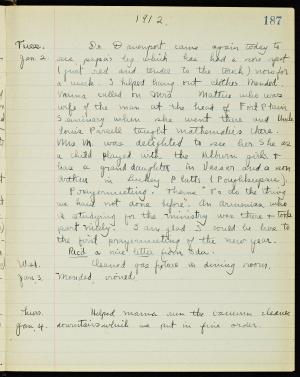 1912. 187
Tues. Dr. Davenport came again today to
Jan. 2. see papa's leg which has had a sore spot
(just red and tender to the touch) now for
a week. I helped hang out clothes. Mended.
Mama called on Mrs. Mattice who was
wife of the man at the head of Fort Plain
Seminary when she went there and Uncle
Louis Parcell taught mathematics there.
Mrs. M. was delighted to see her. She as
a child played with the Milburn girls &
has a granddaughter in Vassar and a son
in Luckey Platts (Poughkeepsie).
Prayermeeting. Theme "To do the thing
we have not done before". An Armenian who
is studying for the ministry was there & took
part nicely. I am glad I could be here to
the first prayermeeting of the new year.
Recd a nice letter from Ida.
Wed. Cleaned gas fixture in dining room.
Jan. 3. Mended, ironed.
Thurs. Helped mama run the vacuum cleaner
Jan. 4. downstairs which we put in fine order.